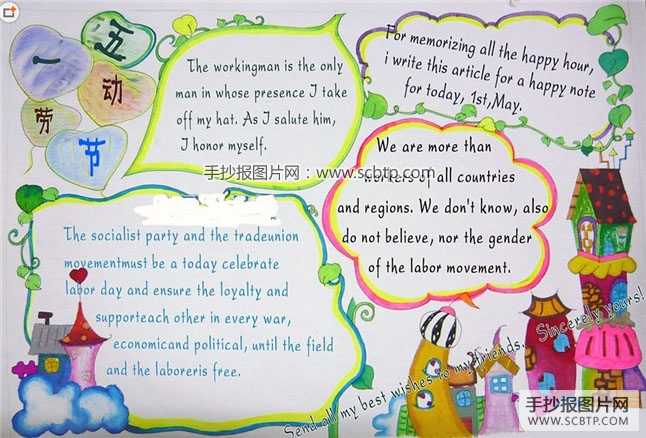 五
一
动
劳
节
The workingman is the only
man in whose presence I take
off my hat. As I salute him,
I honor myself.
For memorizing all the happy hour,
i write this article for a happy note
for today, 1st,May.
手抄报图片网：www.scbtp.com
We are more than
workers of all countries
and regions. We don't know, also
do not believe, nor the gender
of the labor movement.
The socialist party and the tradeunion
movementmust be a today celebrate
labor day and ensure the loyalty and
supporteach other in every war,
economicand political, until the field
and the laboreris free.
Send all my best wishes to my friends.
Sincerely yours!
手抄报图片网
WWW.SCBTP.COM